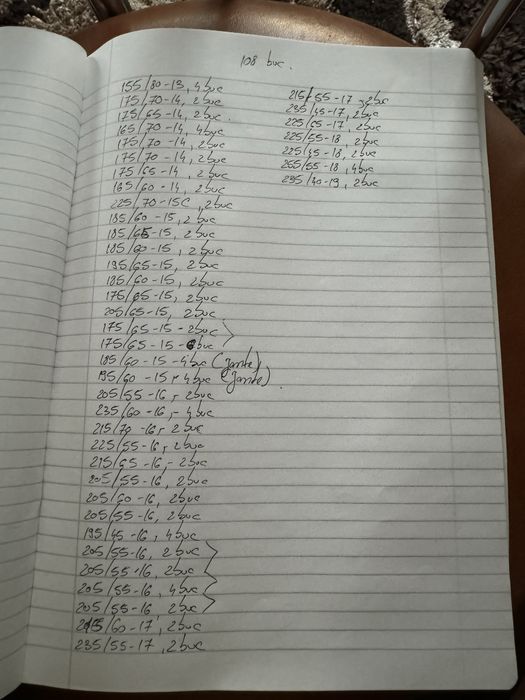 108 buc.
155/80-13, 4buc
175/70-14, 2buc
175/65-14, 2buc.
165/70-14, 4buc
175/70-14, 2buc
175/70-14, 2buc
175/65-14, 2buc
165/60-14, 2buc
225/70-15C, 2buc
185/60-15, 2buc
185/65-15, 2buc
185/60-15, 2buc
195/65-15, 2buc
185/60-15, 2buc
175/65-15, 2buc
205/65-15, 2buc
175/65-15-2buc
175/65-15-6buc
185/60-15-4buc (Jante)
195/60-15,-4buc (Jante).
205/55-16,-2buc
235/60-16,-4buc
215/70-16,-2buc
225/55-16,-2buc
215/65-16,-2buc
205/55-16, 2buc
205/60-16, 2buc
205/55-16, 2buc
195/45-16, 4buc
205/55-16, 2buc
205/55-16, 2buc
205/55-16, 4buc
205/55-16, 2buc
215/60-17, 2buc
235/55-17, 2buc
215/55-17, 2buc
235/45-17, 2buc
225/65-17, 2buc
225/55-18, 2buc
225/45-18, 2buc
255/55-18, 4buc
235/40-19, 2buc